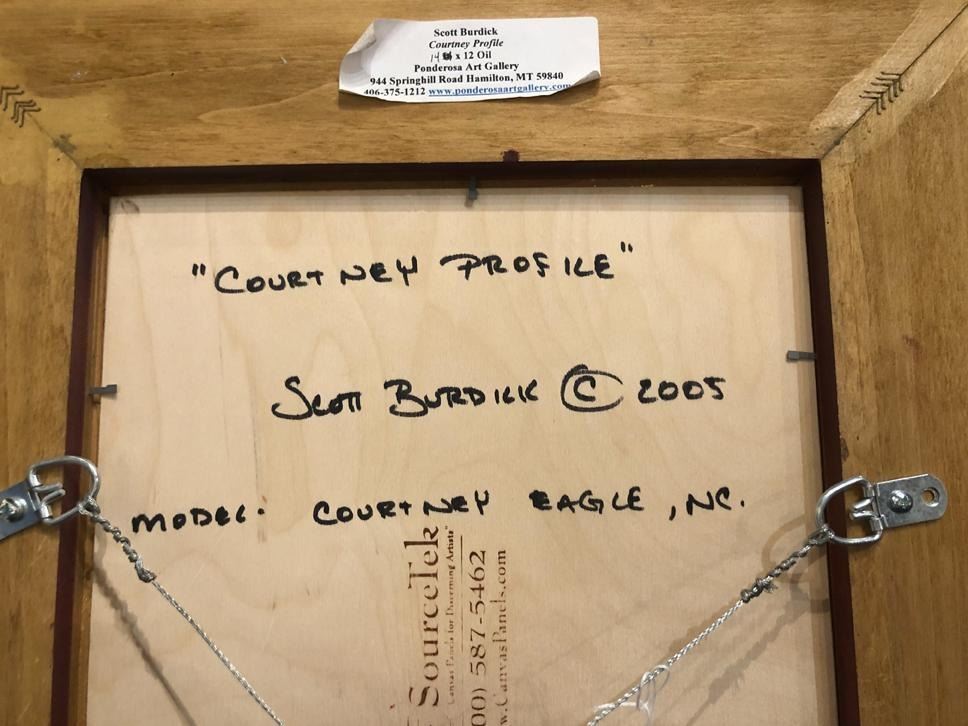 Scott Burdick
Courtney Profile
14 x 12 Oil
Ponderosa Art Gallery
944 Springhill Road Hamilton, MT 59840
406-375-1212 www.ponderosaartgallery.com
"COURTNEY PROFILE"
SCOTT BURDICK © 2005
MODEL: COURTNEY EAGLE, NC.
SourceTek
Canvas Panels for Discerning Artists"
00) 587-5462
w.CanvasPanels.com